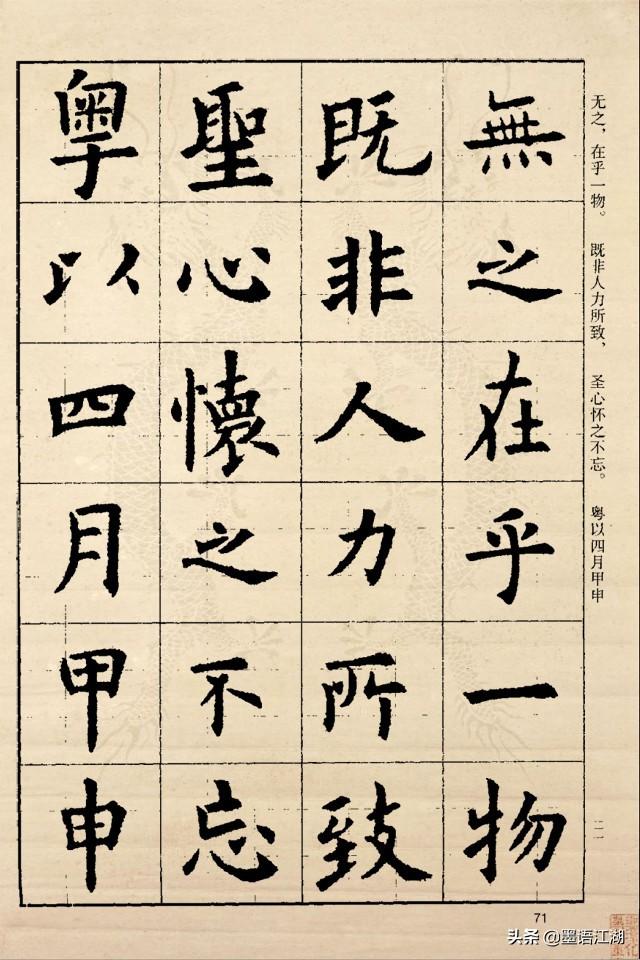 無之在乎一物
既非人力所致
聖心懷之不忘
粤以四月甲申
无之，在乎一物。 既非人力所致， 圣心怀之不忘。 粤以四月甲申
二一
71
头条 @墨语江湖